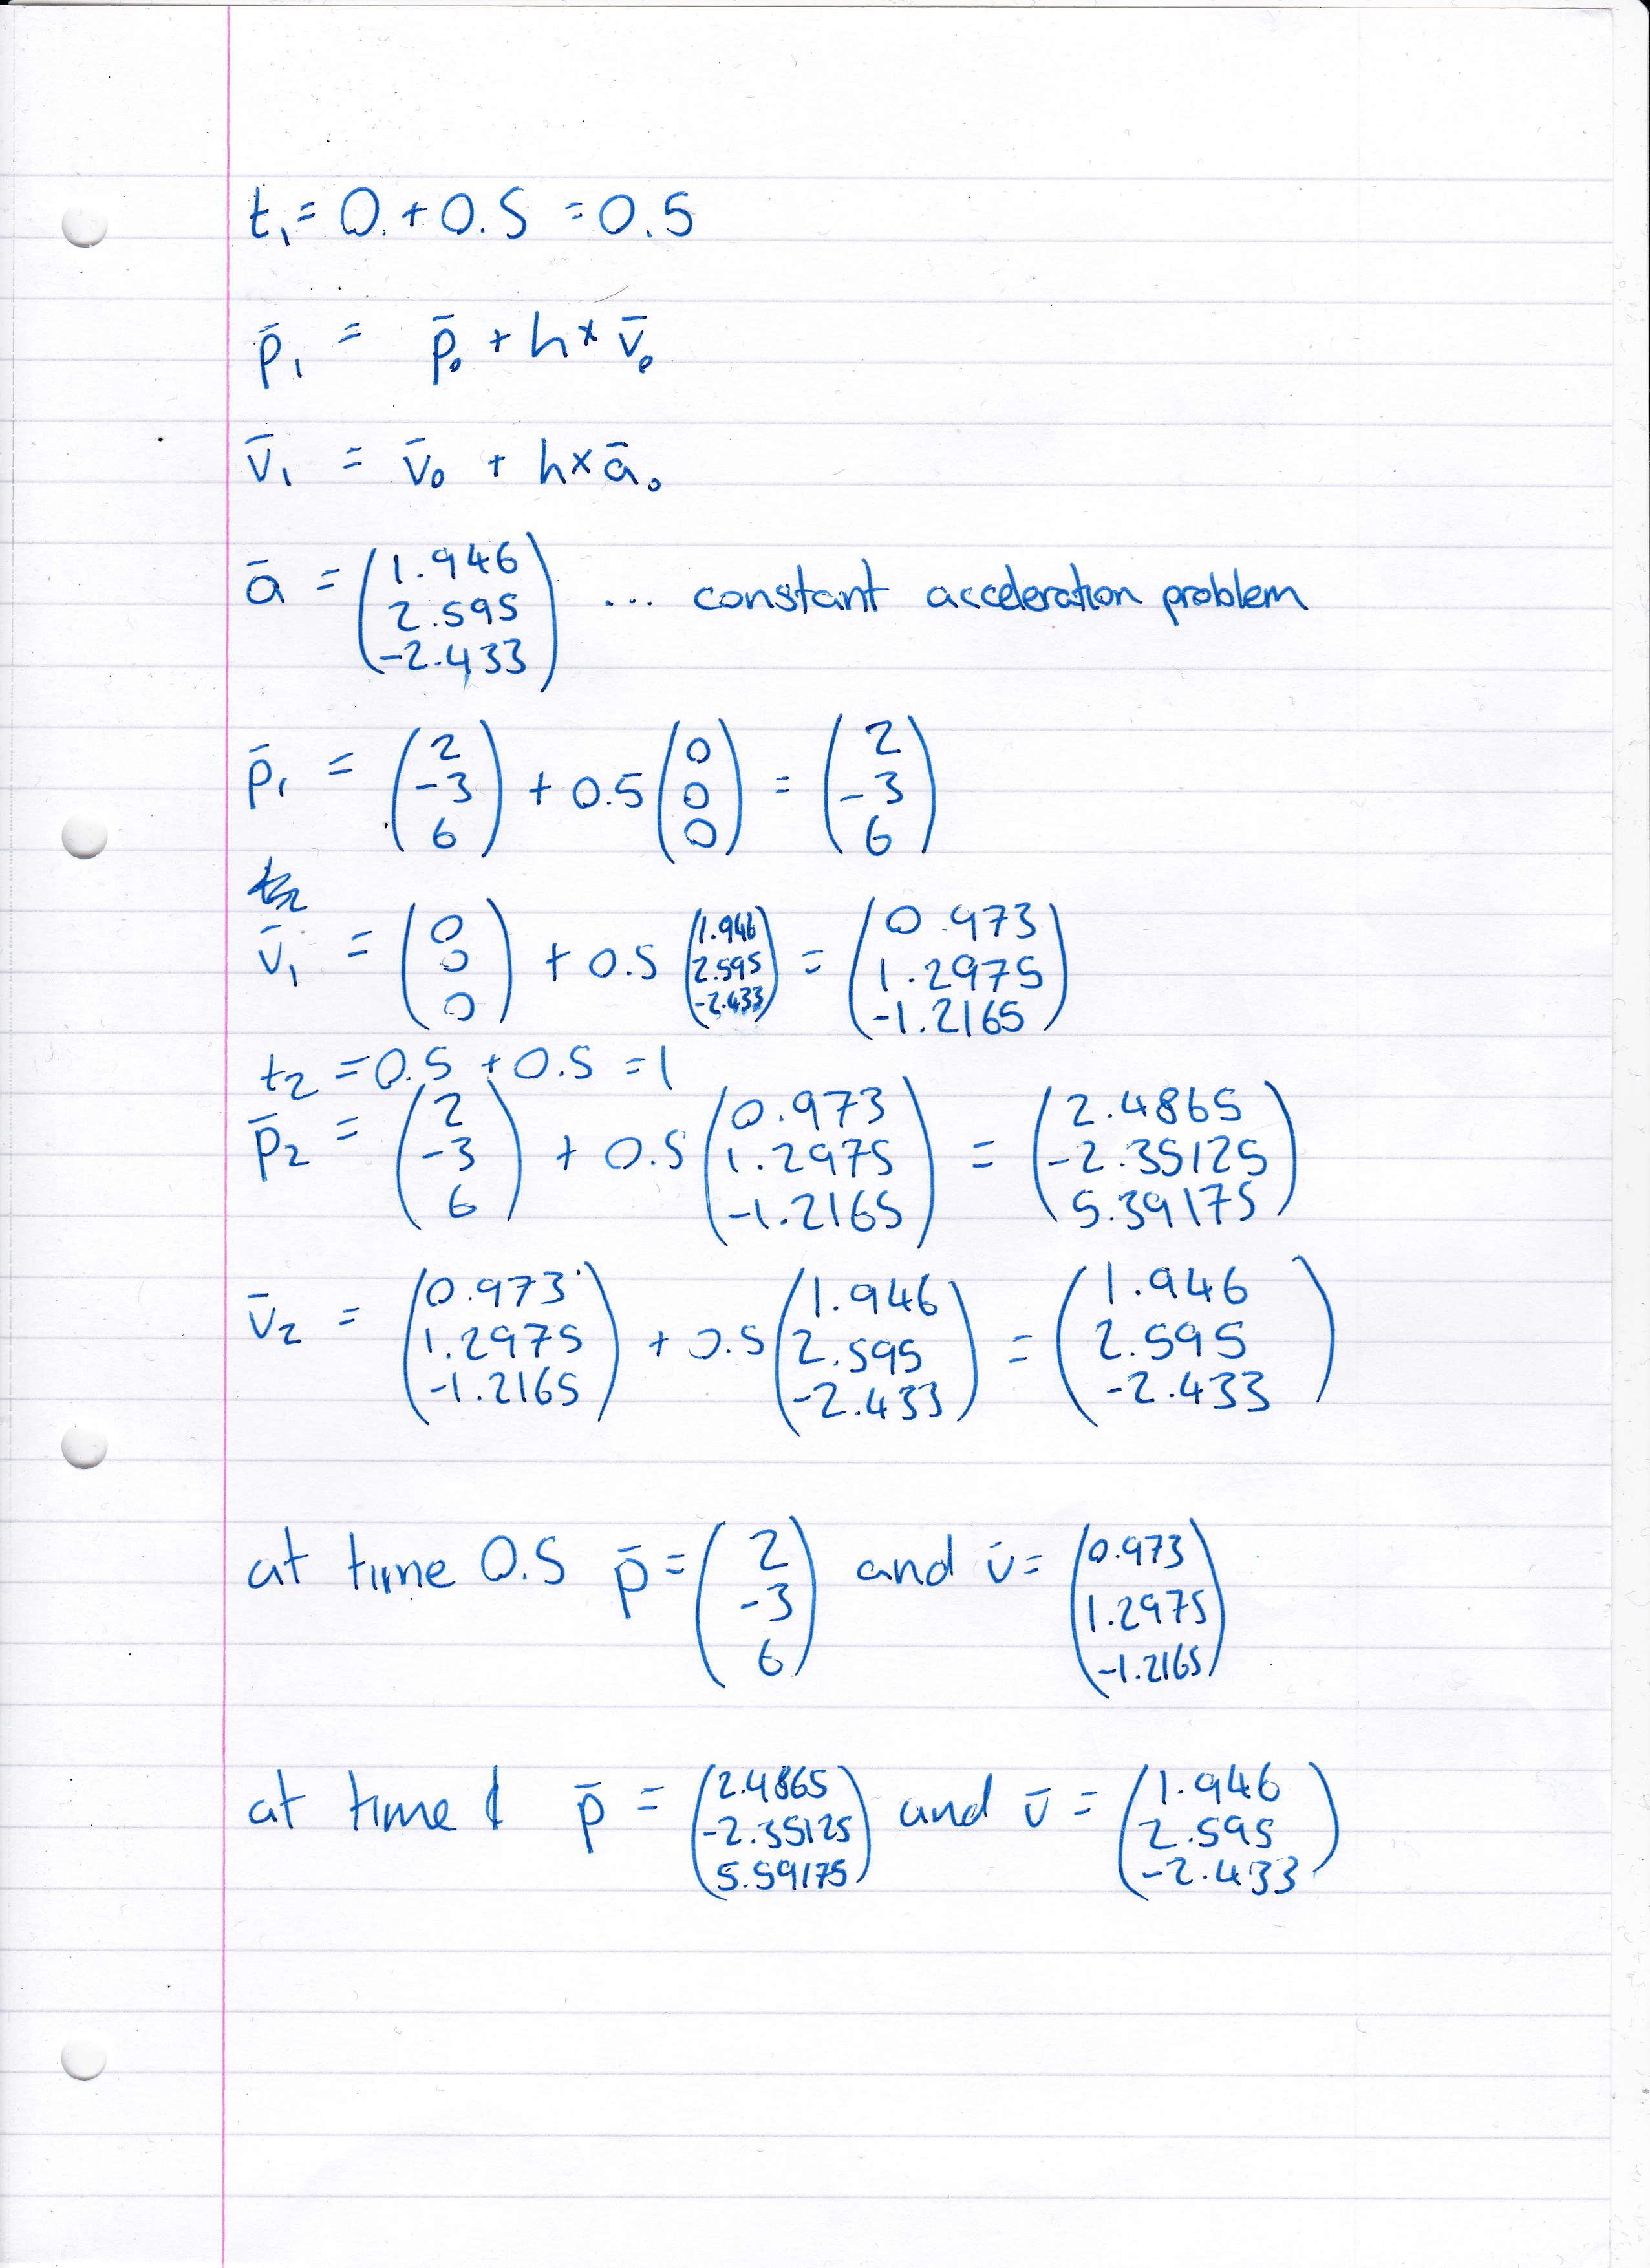 t₁ = 0 + 0.5 = 0.5
p̄₁ = p̄₀ + h × v̄₀
v̄₁ = v̄₀ + h × ā₀
ā = (1.946, 2.595, -2.433) ... constant acceleration problem
p̄₁ = (2, -3, 6) + 0.5 (0, 0, 0) = (2, -3, 6)
v̄₁ = (0, 0, 0) + 0.5 (1.946, 2.595, -2.433) = (0.973, 1.2975, -1.2165)
t₂ = 0.5 + 0.5 = 1
p̄₂ = (2, -3, 6) + 0.5 (0.973, 1.2975, -1.2165) = (2.4865, -2.35125, 5.39175)
v̄₂ = (0.973, 1.2975, -1.2165) + 0.5 (1.946, 2.595, -2.433) = (1.946, 2.595, -2.433)
at time 0.5 p̄ = (2, -3, 6) and v̄ = (0.973, 1.2975, -1.2165)
at time 1 p̄ = (2.4865, -2.35125, 5.59175) and v̄ = (1.946, 2.595, -2.433)